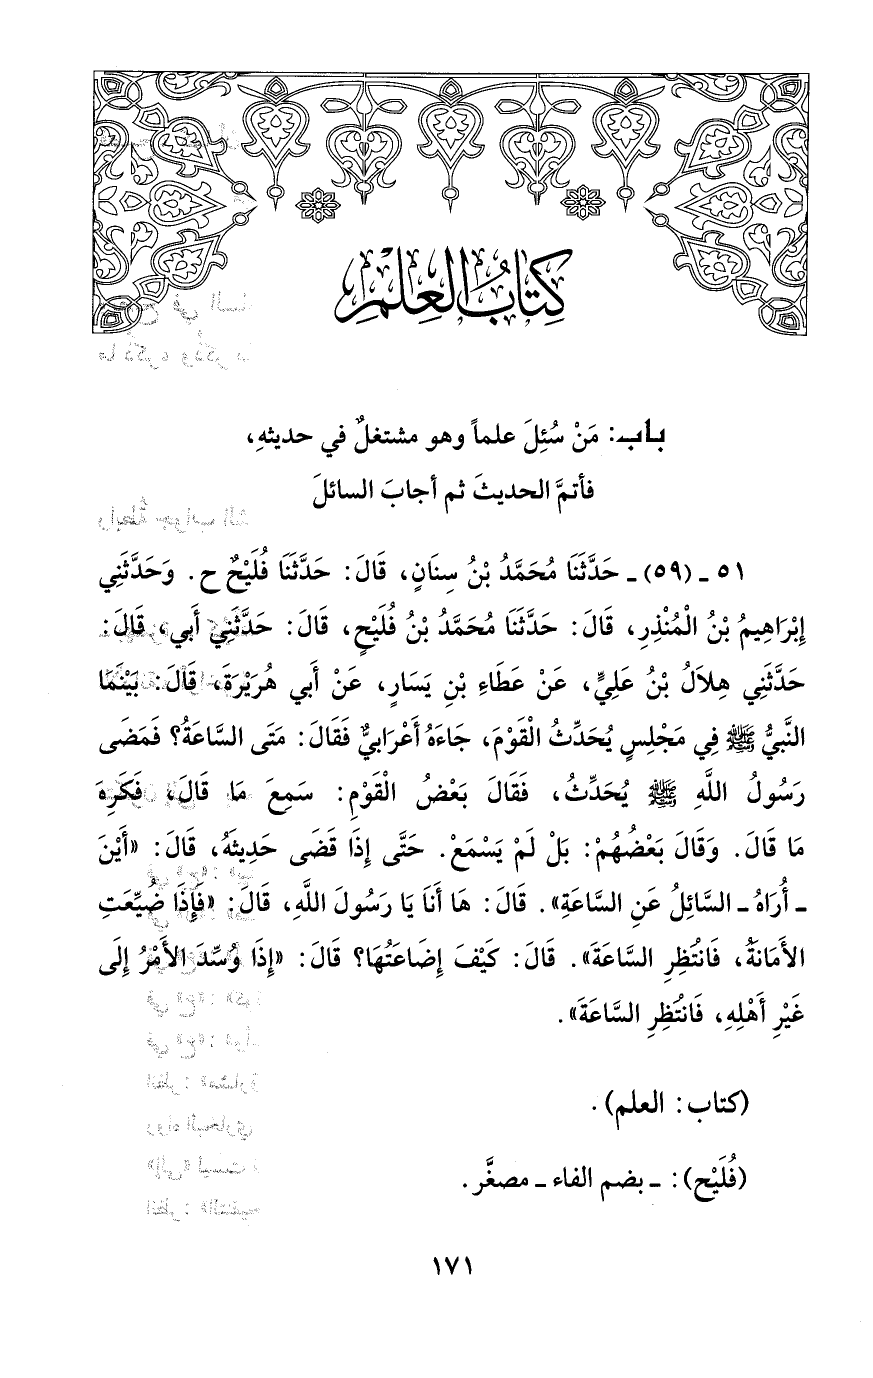 كِتَابُ العِلْمِ
باب: مَنْ سُئِلَ علماً وهو مشتغلٌ في حديثهِ،
فأتمَّ الحديثَ ثم أجابَ السائلَ
٥١ ـ (٥٩) ـ حَدَّثَنَا مُحَمَّدُ بْنُ سِنَانٍ، قَالَ: حَدَّثَنَا فُلَيْحٌ ح. وَحَدَّثَنِي
إِبْرَاهِيمُ بْنُ الْمُنْذِرِ، قَالَ: حَدَّثَنَا مُحَمَّدُ بْنُ فُلَيْحٍ، قَالَ: حَدَّثَنِي أَبي، قَالَ:
حَدَّثَنِي هِلاَلُ بْنُ عَلِيٍّ، عَنْ عَطَاءِ بْنِ يَسَارٍ، عَنْ أَبي هُرَيْرَةَ، قَالَ: بَيْنَمَا
النَّبيُّ ﷺ فِي مَجْلِسٍ يُحَدِّثُ الْقَوْمَ، جَاءَهُ أَعْرَابيٌّ فَقَالَ: مَتَى السَّاعَةُ؟ فَمَضَى
رَسُولُ اللَّهِ ﷺ يُحَدِّثُ، فَقَالَ بَعْضُ الْقَوْمِ: سَمِعَ مَا قَالَ، فَكَرِهَ
مَا قَالَ. وَقَالَ بَعْضُهُمْ: بَلْ لَمْ يَسْمَعْ. حَتَّى إِذَا قَضَى حَدِيثَهُ، قَالَ: «أَيْنَ
ـ أُرَاهُ ـ السَّائِلُ عَنِ السَّاعَةِ». قَالَ: هَا أَنَا يَا رَسُولَ اللَّهِ، قَالَ: «فَإِذَا ضُيِّعَتِ
الأَمَانَةُ، فَانْتَظِرِ السَّاعَةَ». قَالَ: كَيْفَ إِضَاعَتُهَا؟ قَالَ: «إِذَا وُسِّدَ الأَمْرُ إِلَى
غَيْرِ أَهْلِهِ، فَانْتَظِرِ السَّاعَةَ».
(كتاب: العلم).
(فُلَيْح): ـ بضم الفاء ـ مصغَّر.
١٧١